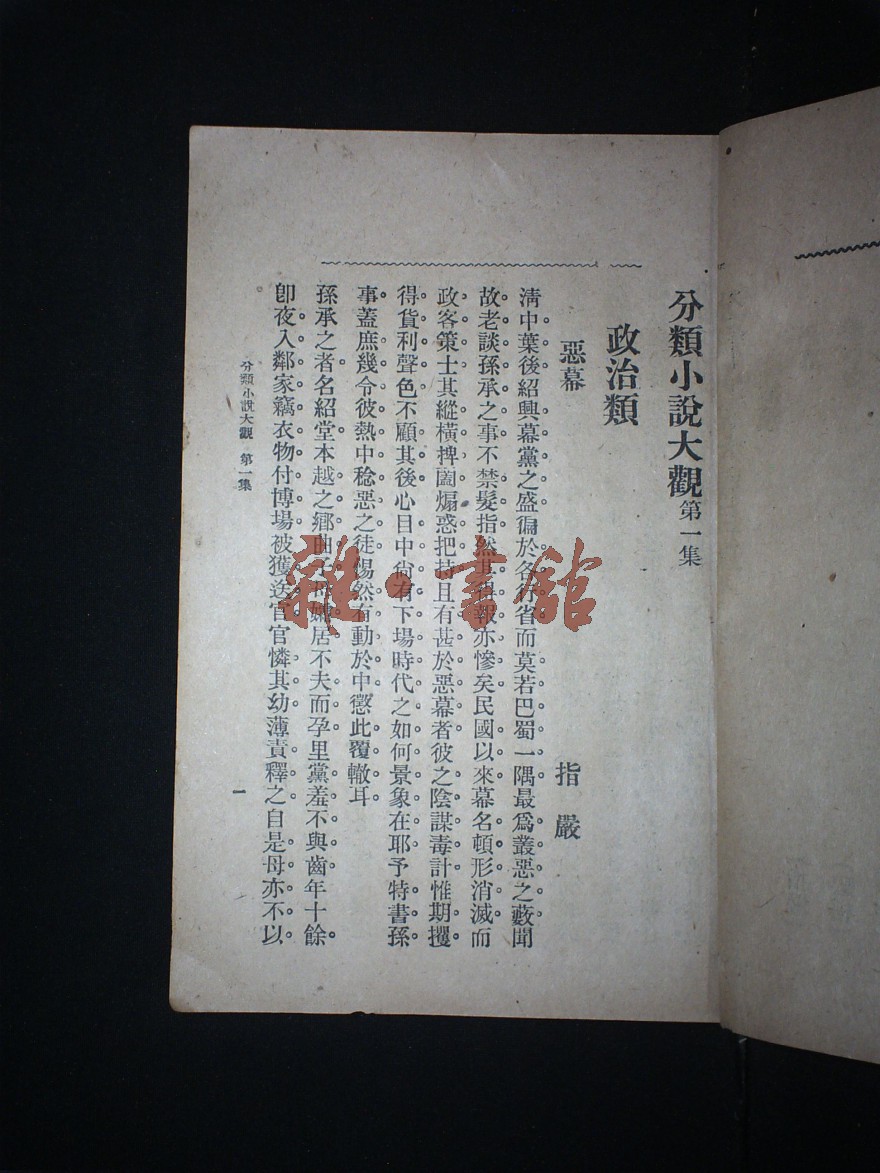 分類小說大觀 第一集
政治類
惡幕
指嚴
清中葉後紹興幕黨之盛徧於各行省而莫若巴蜀一隅最爲叢惡之藪聞
故老談孫承之事不禁髮指然其報亦慘矣民國以來幕名頓形消滅而
政客策士其縱橫捭闔煽惑把持且有甚於惡幕者彼之陰謀毒計惟期攫
得貨利聲色不顧其後心目中尙有下場時代之如何景象在耶予特書孫
事蓋庶幾令彼熱中稔惡之徒惕然有動於中懲此覆轍耳
孫承之者名紹堂本越之鄉曲子母孀居不夫而孕里黨羞不與齒年十餘
卽夜入鄰家竊衣物付博場被獲送官官憐其幼薄責釋之自是母亦不以
分類小說大觀 第一集
一
雜·書館